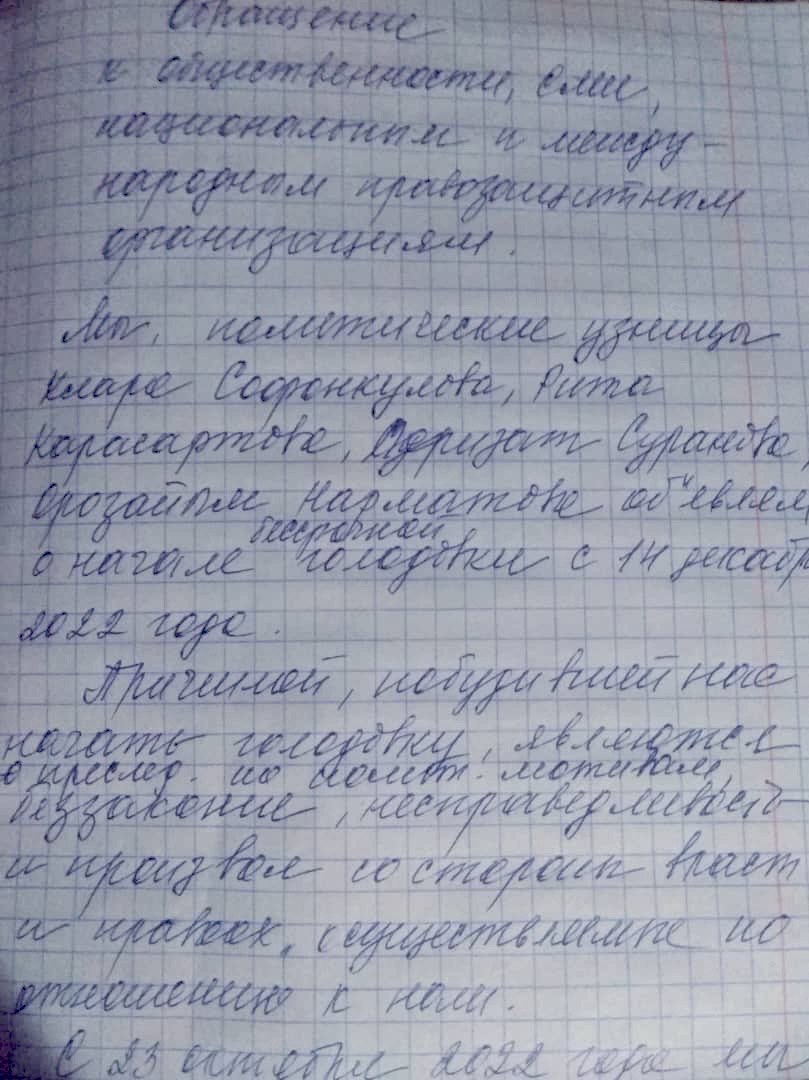 Обращение
к общественности, СМИ,
национальным и между-
народным правозащитным
организациям.
Мы, политические узницы
Клара Сооронкулова, Рита
Карасартова, Перизат Суранова,
Орозайым Нарматова объявляем
бессрочной
о начале голодовки с 14 декабр
2022 года.
Причиной, побудившей нас
начать голодовку, являются
преслед. по полит. мотивам,
беззаконие, несправедливость
и произвол со стороны власт
и правоох. осуществляемые по
отношению к нам.
С 23 октября 2022 года мы